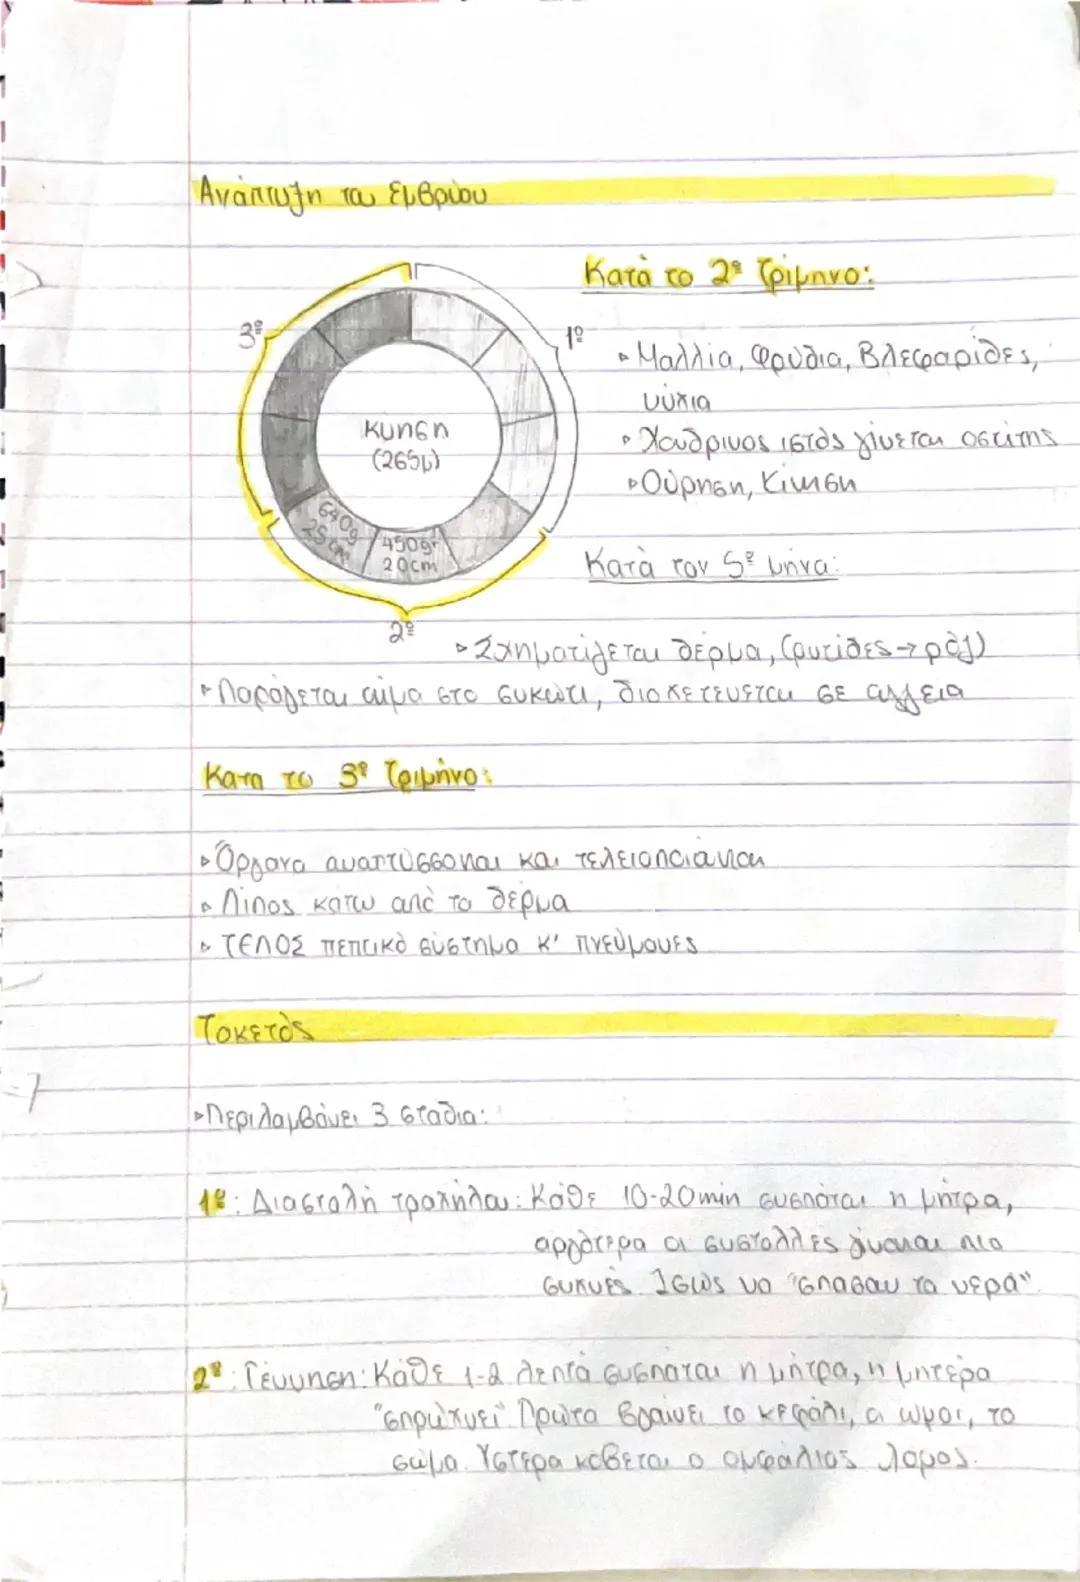 Ανάπτυξη του Εμβρύου
Κατά το 2º Τρίμηνο:
3º
1º
▹Μαλλιά, Φρύδια, Βλεφαρίδες,
νύχια
κύηση
(265μ)
▹Χόνδρινος ιστός γίνεται οστίτης
▹Ούρηση, Κίνηση
640g
25cm
450gr
20cm
Κατά τον 5º μήνα:
2º
▹Σχηματίζεται δέρμα, (ρυτίδες→ρόζ)
▹Παράγεται αίμα στο συκώτι, διοχετεύεται σε αγγεία
Κατα το 3º Τριμήνο:
▹Όργανα αναπτύσσονται και τελειοποιούνται
▹Λίπος κάτω από το δέρμα
▹ΤΕΛΟΣ πεπτικό σύστημα κ' πνεύμονες
Τοκετός
▹Περιλαμβάνει 3 στάδια:
1º: Διαστολή τραχήλου: Κάθε 10-20min συσπάται η μήτρα,
αργότερα οι συστολλές γίνονται πιο
συχνές. Ίσως να "σπάσουν τα νερά".
2º: Γέννηση: Κάθε 1-2 λεπτά συσπάται η μήτρα, η μητέρα
"σπρώχνει" Πρώτα βγαίνει το κεφάλι, οι ώμοι, το
σώμα. Ύστερα κόβεται ο ομφάλιος λώρος.